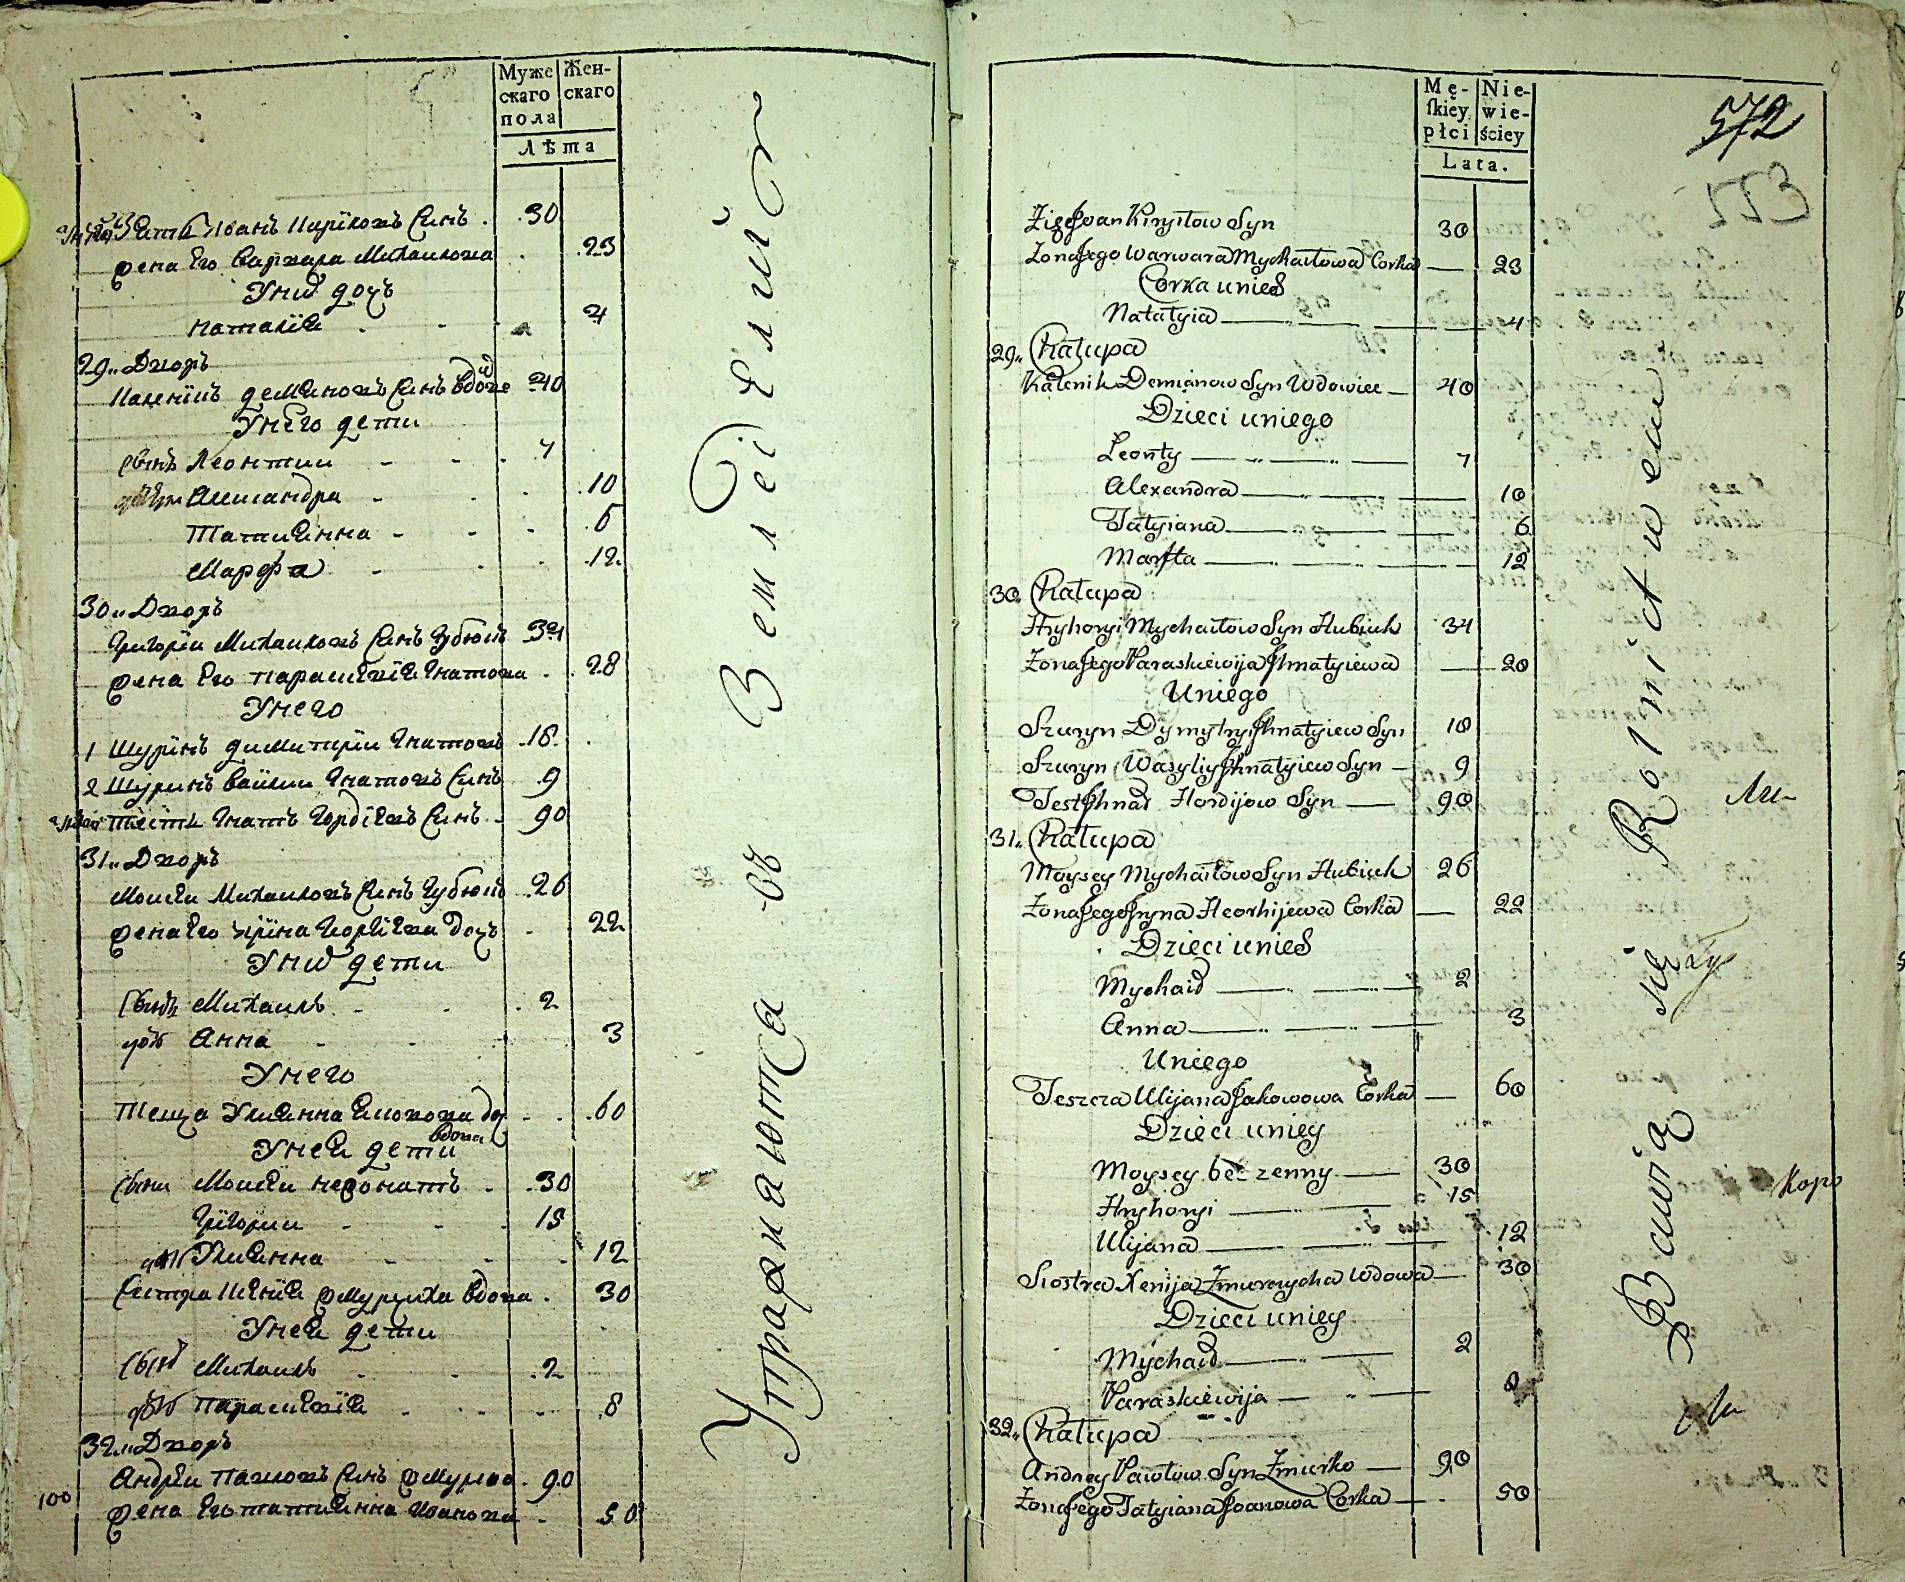 Муже
скаго
пола
Жен-
скаго
Лѣта
Зять Иванъ Кириловъ Синъ 30
жена Его Варвара Михаилова 23
Уних дочь
Наталія 4
29„ Дворъ
Каленикъ Демяновъ Синъ вдовец 40
Унего дети
сынъ Леонтии 7
дочери Александра 10
Татиянна 6
Марфа 12
30„ Дворъ
Григорїи Михаиловъ Синъ Губюкъ 34
жена Его Параскевія Игнатова 28
Унего
1 Шуринъ Димитрїи Игнатовъ 18
2 Шуринъ Василии Игнатовъ Синъ 9
Тесть Игнатъ Гордіевъ Синъ 90
31„ Дворъ
Моисеи Михаиловъ Синъ Губюкъ 26
жена Его Ирина Георгіева Дочъ 22
Уних дети
Сынъ Михаилъ 2
дочь Анна 3
Унего
Теща Улиянна Яковова доч 60
вдова
Унея дети
Сыни Моисеи неженатъ 30
Григории 15
дочь Улиянна 12
Сестра Ксенія Жмурчиха вдова 30
Унея дети
Сынъ Михаилъ 2
дочь Параскевія 8
32„ Дворъ
Андреи Павловъ Синъ Жмурко 90
100 жена Его Татиянна Иванова 50
Упражняются въ Земледѣлий
Mę-
skiey
płci
Nie-
wie-
ściey
Lata.
572
553
Zięć Joan Kiryłow Syn 30
Zona Jego Warwara Mychaiłowa Corka 23
Corka unich
Natalyia 4
29„ Chałupa
Kalenik Demianow Syn Wdowiec 40
Dzieci uniego
Leonty 7
Alexandra 10
Tatyiana 6
Marfta 12
30„ Chałupa
Hryhoryi Mychaiłow Syn Hubiuk 34
Zona Jego Paraskiewija Jhnatyiewa 20
Uniego
Szuryn Dymytryi Jhnatyiew Syn 18
Szuryn Wasyliy Jhnatyiew Syn 9
Test Jhnat Hordijow Syn 90
31„ Chałupa
Moysey Mychaiłow Syn Hubiuk 26
Zona Jego Jryna Heorhijewa Corka 22
Dzieci unich
Mychaił 2
Anna 3
Uniego
Teszcza Ulijana Jakowowa Corka 60
Dzieci uniey
Moysey bez zenny 30
Hryhoryi 15
Ulijana 12
Siostra Xenija Zmurczycha Wdowa 30
Dzieci uniey
Mychaił 2
Paraskiewija 8
32„ Chałupa
Andrey Pawłow Syn Zmurko 90
Zona Jego Tatyiana Joanowa Corka 50
Bawią się Rolnictwem